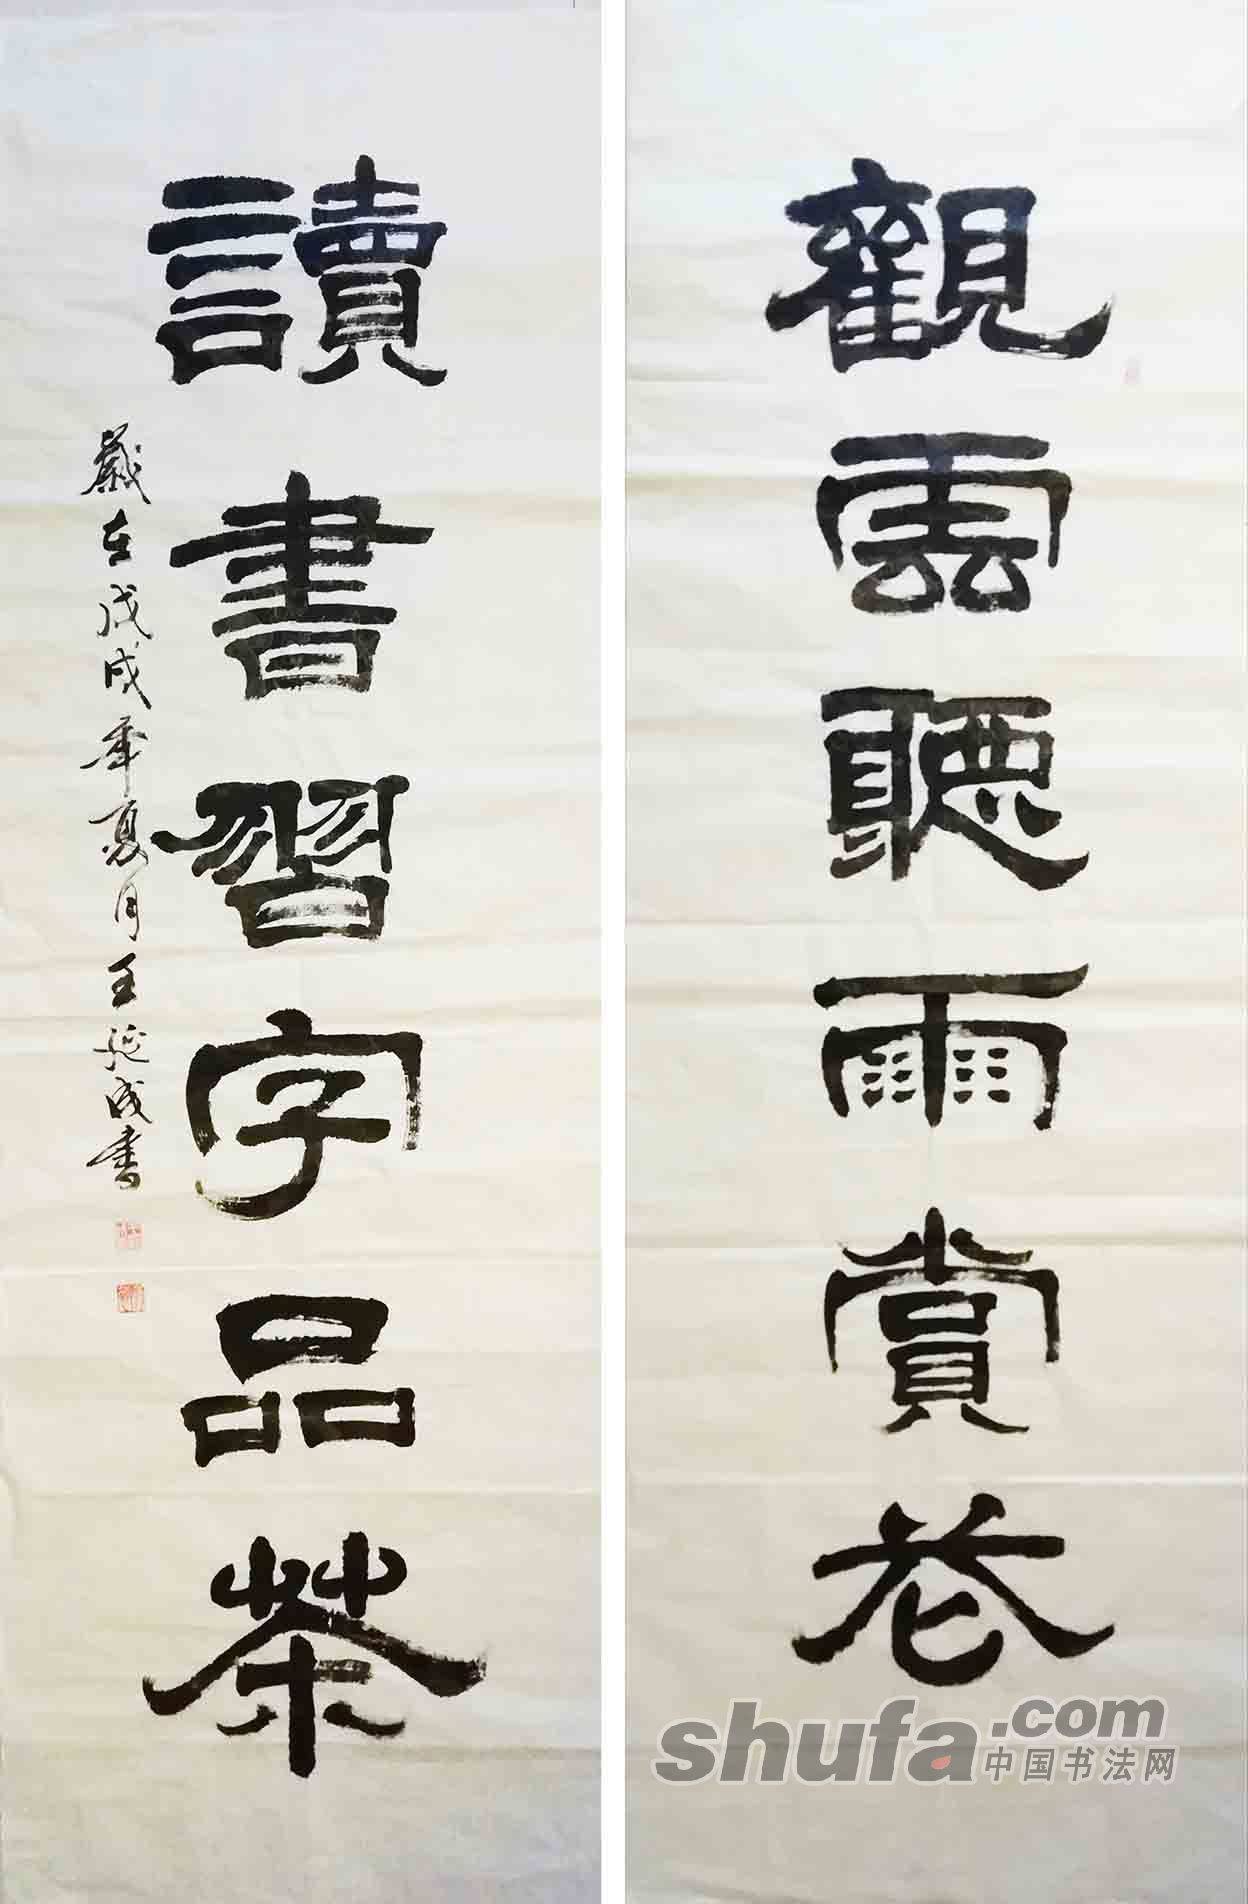 觀雲聽雨賞花
讀書習字品茶
嵗在戊戌年夏月王延成書
shufa.com
中国书法网